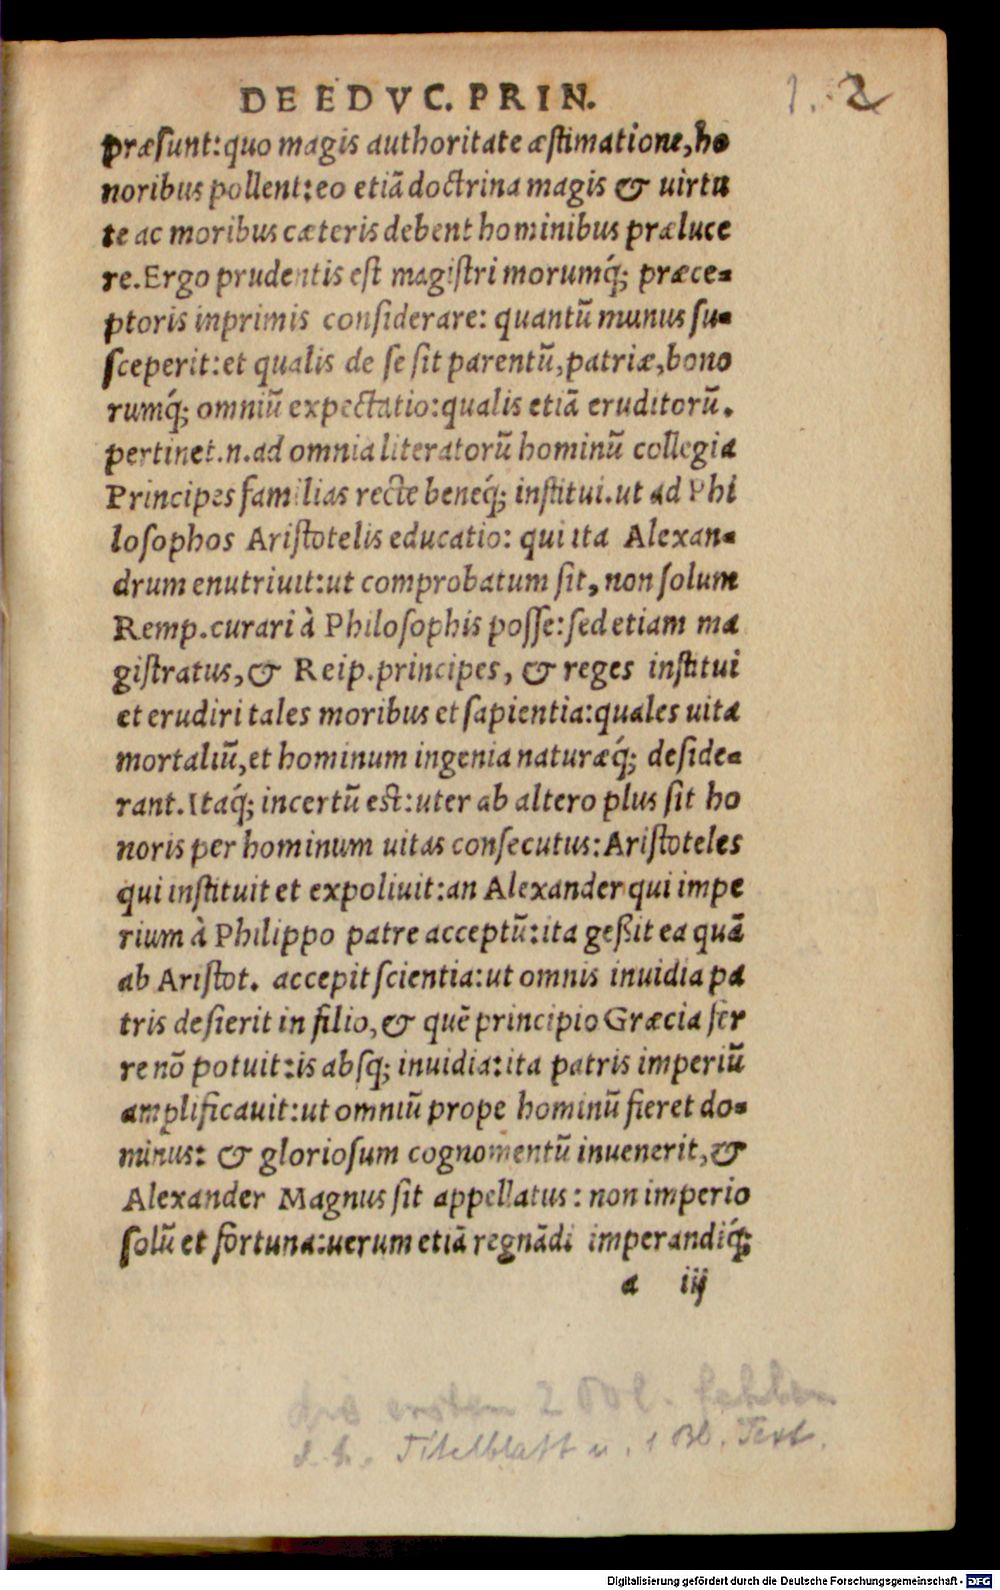 DE EDVC. PRIN. 1. 2
præsunt: quo magis authoritate æstimatione, ho
noribus pollent: eo etiã doctrina magis & uirtu
te ac moribus cæteris debent hominibus præluce
re. Ergo prudentis est magistri morumq́; præce-
ptoris inprimis considerare: quantũ munus su-
sceperit: et qualis de se sit parentũ, patriæ, bono
rumq́; omniũ expectatio: qualis etiã eruditorũ.
pertinet .n. ad omnia literatorũ hominũ collegia
Principes familias recte beneq́; institui. ut ad Phi
losophos Aristotelis educatio: qui ita Alexan-
drum enutriuit: ut comprobatum sit, non solum
Remp. curari à Philosophis posse: sed etiam ma
gistratus, & Reip. principes, & reges institui
et erudiri tales moribus et sapientia: quales uita
mortaliũ, et hominum ingenia naturæq́; deside-
rant. Itaq́; incertũ est: uter ab altero plus sit ho
noris per hominum uitas consecutus: Aristoteles
qui instituit et expoliuit: an Alexander qui impe
rium à Philippo patre acceptũ: ita geßit ea quã
ab Aristot. accepit scientia: ut omnis inuidia pa
tris desierit in filio, & quẽ principio Græcia fer
re nõ potuit: is absq; inuidia: ita patris imperiũ
amplificauit: ut omniũ prope hominũ fieret do-
minus: & gloriosum cognomentũ inuenerit, &
Alexander Magnus sit appellatus: non imperio
solũ et fortuna: uerum etiã regnãdi imperandiq́;
a iij
die ersten 2 Bl. fehlen
d. h. Titelblatt u. 1 Bl. Text.
Digitalisierung gefördert durch die Deutsche Forschungsgemeinschaft - DFG